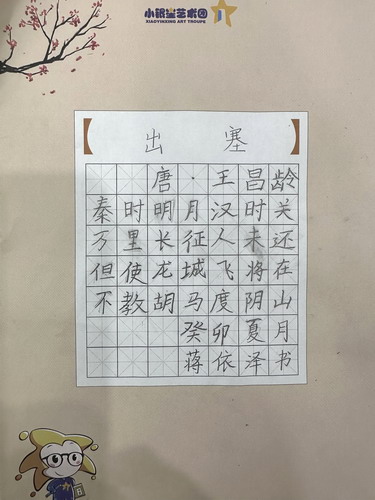 小银星艺术团
XIAOYINXING ART TROUPE
出塞
唐·王昌龄
秦时明月汉时关
万里长征人未还
但使龙城飞将在
不教胡马度阴山
癸卯夏月
蒋依泽书